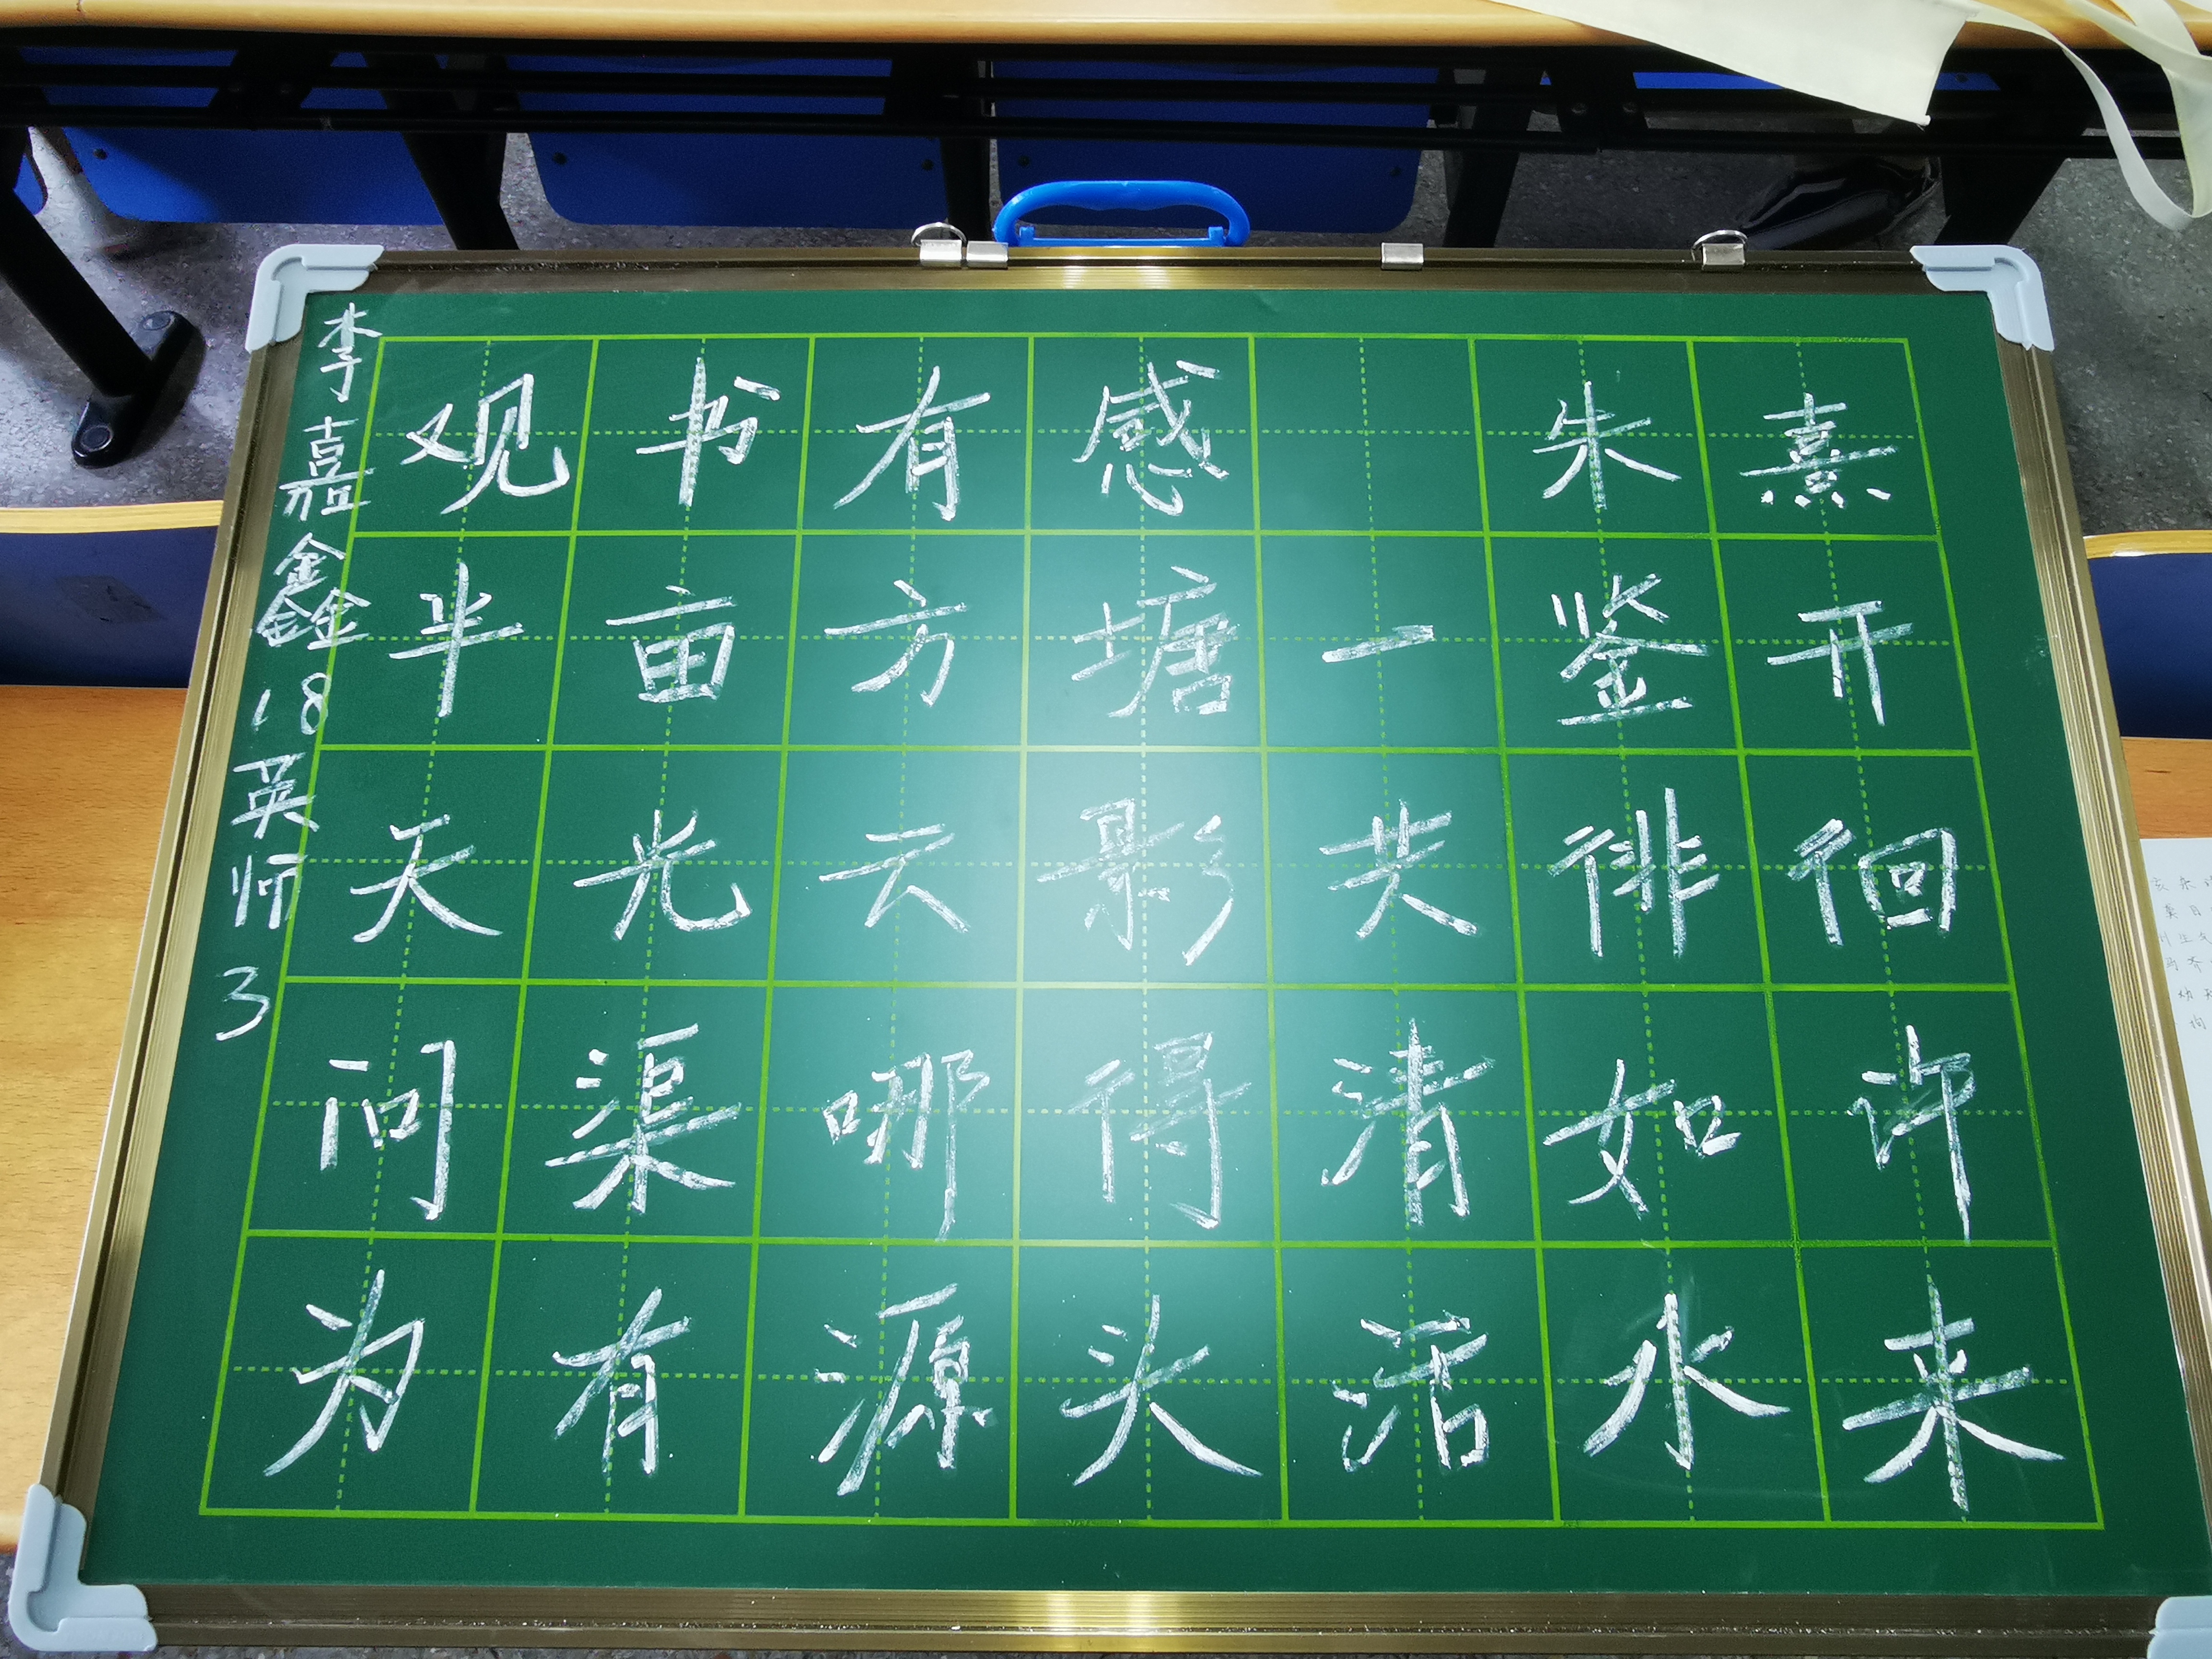 李嘉鑫18英师3
观书有感 朱熹
半亩方塘一鉴开
天光云影共徘徊
问渠哪得清如许
为有源头活水来